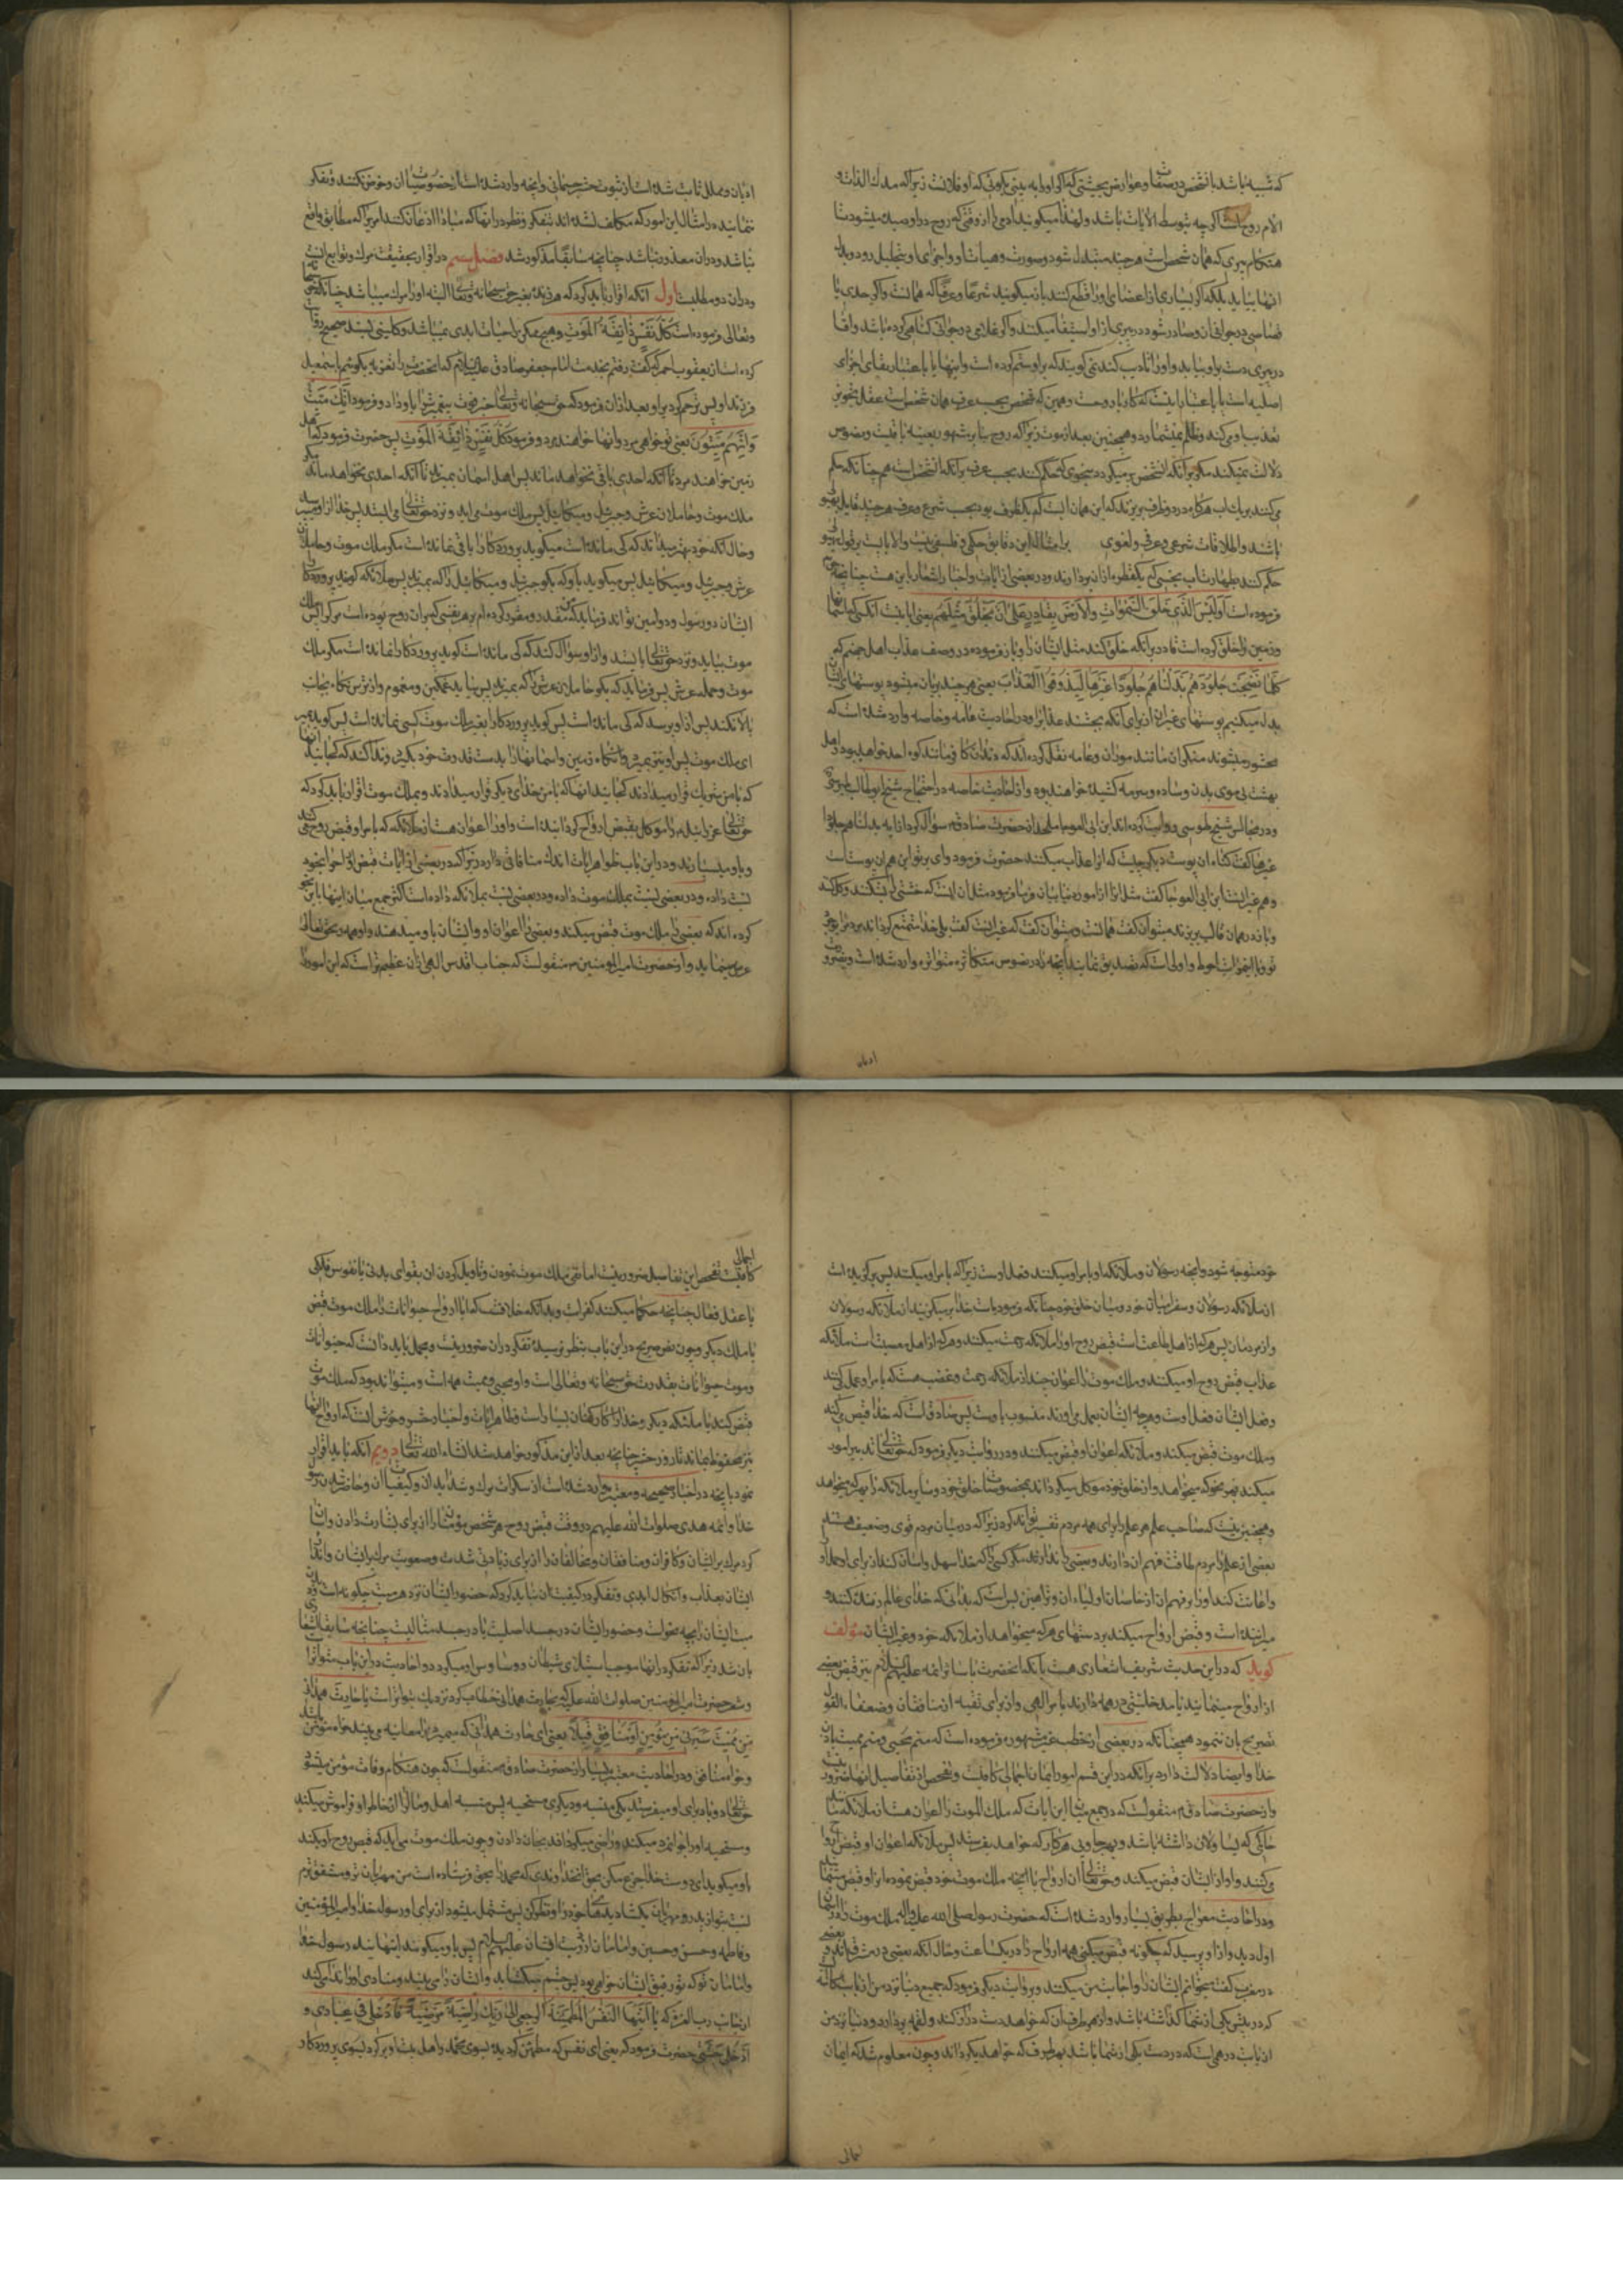 که شبیه باشد بآن شخص در صفات و عوارض بحیثی که اکر او را به بینی بکوئی که او فلانست زیرا که مدرک لذات و
الام روح است اکرچه بتوسط الات باشد و لهذا میکویند ادمی را از وقتی که روح در او دمیده میشود تا
هنکام پیری که همان شخص است هر چند متبدل شود و صورت و هیأت او و اجزای او بتحلیل رود و بدل
انها بیاید بلکه اکر بسیاری از اعضای او را قطع کنند باز میکویند شرعا و عرفا که همانست و اکر حدی یا
قصاصی در جوانی از او صادر شود در پیری از او استیفا میکنند و اکر غلامی در جوانی کناهی کرده باشد و اقا
در پیری دست بر او بیابد و او را تادیب کند نمی کویند که بر او ستم کرده است و اینها یا باعتبار بقای اجزای
اصلیه است یا باعتبار اینست که کار با روحست و همین که شخص بحسب عرف همان شخص است عقل تجویز
تعذیب او می کند و ظلم نمیشمارد و همچنین بعد از موت زیرا که روح بنا بر مشهور بعینه باقیست و نصوص
دلالت نمیکند مکر بر آنکه ان شخص بر میکردد بنحوی که حکم کنند بحسب عرف بر آنکه ان شخص است همچنانکه حکم
می کنند بر یک اب هرکاه در دو ظرف بریزند که این همان ابست که در یک ظرف بود بحسب شرع و عرف هر چند قایل بهیولی
باشند و اطلاقات شرعی و عرفی و لغوی بر امثال این دقایق حکمی و فلسفی نیست و الا بایست بر قول بهیولی
حکم کنند بطهارت اب نجسی که یکقطره از ان بردارند و در بعضی از ایات و اخبار اشعار باین هست چنانچه حق
فرموده است اَوَلَیْسَ الَّذی خَلَقَ السَّمٰوٰاتِ وَالْاَرْضَ بِقٰادِرٍ عَلٰی اَنْ یَخْلُقَ مِثْلَهُمْ یعنی ایا نیست انکسی که اسمانها
و زمین را خلق کرده است قادر بر آنکه خلق کند مثل ایشان را و باز فرموده در وصف عذاب اهل جهنم که
کُلَّمٰا نَضِجَتْ جُلُودُهُمْ بَدَّلْنٰاهُمْ جُلُودًا غَیْرَهٰا لِیَذُوقُوا الْعَذٰابَ یعنی هر چند بریان میشود پوستهای ایشان
بدل میکنیم پوستهای غیر ان از برای آنکه بچشند عذاب را و در احادیث عامه و خاصه وارد شده است که
محشور میشوند متکبران مانند موران و عامه نقل کرده اند که دندان کافر مانند کوه احد خواهد بود و اهل
بهشت بی موی بدن و ساده و سرمه کشیده خواهند بود و از احادیث خاصه در احتجاج شیخ ابوطالب طبرسی
و در مجالس شیخ طوسی روایت کرده اند ابن ابی العوجا ملحد از حضرت صادق ع سؤال کرد از ایه بدلناهم جلودا
غیرها کفت کناه ان پوست دیکر چیست که او را عذاب میکنند حضرت فرمود وای بر تو این همان پوست است
و هم غیر انست ابن ابی العوجا کفت مثل انرا از امور دنیا بیان فرما فرمود مثل ان اینست که خشتی را بشکنند و کل کنند
و باز در همان قالب بریزند میتوان کفت همانست و میتوان کفت که غیر انست کفت بلی خدا متمتع کرداند مردم را بوجود
تو و اولی است که تصدیق نمایند بآنچه در نصوص متکاثره متواتره وارد شده است و بضرورت
ادیان
ادیان و ملل ثابت شده است از ثبوت حشر جسمانی و آنچه وارد شده است از خصوصیات ان و خوض نکنند و تفکر
ننمایند در امثال این امور که مکلف نشده اند بتفکر و نظر در انها که مبادا اذعان کنند امریرا که مطابق واقع
نباشد و در ان معذور نباشد چنانچه سابقا مذکور شد فصل سیم در اقرار بحقیقت مرک و توابع انست
و در ان دو مطلبست اول آنکه اقرار باید کرد که هر زنده بغیر حق سبحانه و تعالی البته او را مرک میباشد چنانکه حق سبحانه
و تعالی فرموده است کُلُّ نَفْسٍ ذٰائِقَةُ الْمَوْتِ و هیچ ممکن را حیات ابدی نمیباشد و کلینی بسند صحیح روایت
کرده است از یعقوب احمر که کفت رفتم بخدمت امام جعفر صادق علیه السلام که انحضرت را تعزیه بکویم اسمعیل
فرزند او پس ترحم کرد بر او بعد از ان فرمود که حق سبحانه و تعالی خبر فوت پیغمبر را باو داد و فرمود اِنَّکَ مَیِّتٌ
وَاِنَّهُمْ مَیِّتُونَ یعنی تو خواهی مرد و انها خواهند مرد و فرمود کُلُّ نَفْسٍ ذٰائِقَةُ الْمَوْتِ پس حضرت فرمود که اهل
زمین خواهند مرد تا آنکه احدی باقی نخواهد ماند پس اهل اسمان بمیرند تا آنکه احدی نخواهد ماند مکر
ملک موت و حاملان عرش و جبرئیل و میکائیل پس ملک موت می اید و نزد حق تعالی می ایستد پس خدا از او میپرسد
و حال انکه خود بهتر میداند که کی مانده است میکوید پروردکارا باقی نمانده است مکر ملک موت و حاملان
عرش و جبرئیل و میکائیل پس میکوید باو که بکو جبرئیل و میکائیل را که بمیرند پس ملائکه کویند پروردکارا
ایشان دو رسول و دو امین تو اند فرماید که من مقدر و مقرر کرده ام بر هر نفسی که در ان روح بوده است مرک را پس ملک
موت بیاید و نزد حق تعالی بایستد و از او سؤال کند که کی مانده است کوید پروردکارا نمانده است مکر ملک
موت و حمله عرش پس فرماید که بکو حاملان عرش را که بمیرند پس بیاید غمکین و مغموم و از ترس نکاه بجانب
بالا نکند پس از او پرسد که کی مانده است پس کوید پروردکارا بغیر ملک موت کسی نمانده است پس کوید بمیر
ای ملک موت پس او نیز بمیرد و انکاه زمین و اسمانها را بدست قدرت خود بکیرد و ندا کند که کجایند انها
که با من شریک قرار میدادند کجایند انها که با من خدای دیکر قرار میدادند و بملک موت اقرار باید کرد که
حق تعالی عزرائیل را موکل بقبض ارواح کردانیده است و او را اعوان هست از ملائکه که بامر او قبض روح می کنند
و باو میسپارند و در این باب ظواهر ایات اندک منافاتی دارد زیرا که در بعضی از ایات قبض ارواح را بخود
نسبت داده و در بعضی نسبت بملک موت داده و در بعضی نسبت بملائکه داده است اکثر جمع میان اینها باین نحو
کرده اند که بعضی را ملک موت قبض میکند و بعضی را اعوان او و ایشان باو میدهند و او همه را بحق تعالی
عرض مینماید و از حضرت امیر المؤمنین ع منقولست که جناب اقدس الهی از ان عظیم تر است که این امور را
خود متوجه شود و آنچه رسولان و ملائکه او بامر او میکنند فعل اوست زیرا که بامر او میکنند پس برکزیده است
از ملائکه رسولان و سفرا میان خود و میان خلق خود چنانکه فرموده است خدا برمیکزیند از ملائکه رسولان
و از مردمان پس هرکه از اهل طاعت است قبض روح او را ملائکه رحمت میکنند و هرکه از اهل معصیت است ملائکه
عذاب قبض روح او میکنند و ملک موت را اعوان چند از ملائکه رحمت و غضب هست که بامر او عمل می کنند
و فعل ایشان فعل اوست و هر چه ایشان بعمل می اورند منسوب باوست پس صادقست که خدا قبض می کند
و ملک موت قبض میکند و ملائکه اعوان او قبض میکنند و در روایت دیکر فرمود که حق تعالی تدبیر امور
میکند بهر نحو که میخواهد و از خلق خود موکل میکرداند بخصوصیات خلق خود و سایر ملائکه را بهر که میخواهد
و همچنین نیست که صاحب علم هر علم را برای همه مردم تفسیر تواند کرد زیرا که در میان مردم قوی و ضعیف هستند
بعضی از علم را مردم طاقت فهم ان دارند و بعضی را ندارند مکر کسی را که خدا سهل و اسان کند از برای او حمل
و اعانت کند او را بر فهم ان از خاصان اولیاء ان و ترا همین بس است که بدانی که خدای عالم زنده کننده و
میراننده است و قبض ارواح میکند بر دستهای هرکه میخواهد از ملائکه خود و غیر ایشان مؤلف
کوید که در این حدیث شریف اشعاری هست بآنکه انحضرت با سایر ائمه علیهم السلام نیز قبض بعضی
از ارواح مینمایند یا مدخلیتی در همه دارند بامر الهی و از برای تقیه از منافقان و ضعفاء العقول
تصریح بان ننمود همچنانکه در بعضی از خطب غیر مشهوره فرموده است که منم محیی و منم ممیت باذن
خدا و ایضا دلالت دارد بر آنکه در این قسم امور ایمان اجمالی کافیست و تفحص از تفاصیل انها ضرور نیست
و از حضرت صادق ع منقولست که در جمع میان این ایات که ملک الموت را اعوان هست از ملائکه مانند
حاکمی که یساولان داشته باشد و بهر جا و پی هر کار که خواهد بفرستد پس ملائکه اعوان او قبض ارواح
می کنند و او از ایشان قبض میکند و حق تعالی ان ارواح را با آنچه ملک موت خود قبض نموده از او قبض مینماید
و در احادیث معراج بطریق بسیار وارد شده است که حضرت رسول صلی الله علیه و اله ملک موت را در اسمان
اول دید و از او پرسید که چکونه قبض میکنی همه ارواح را در یک ساعت و حال آنکه بعضی در مشرقند و بعضی
در مغرب کفت میخوانم ایشان را و اجابت من میکنند و بروایت دیکر فرمود که جمیع دنیا نزد من از بابت کاسه
که در پیش یکی از شما کذاشته باشد و از هر طرف ان که خواهد دست دراز کند و لقمه بردارد و دنیا نزد من
از بابت درهمی است که در دست یکی از شما باشد بهر طرف که خواهد بکرداند و چون معلوم شد که ایمان
اجمالی
اجمالی
کافیست تفحص این تفاصیل ضرور نیست اما نفی ملک موت نمودن و تاویل کردن ان بقوای بدنی یا نفوس فلکی
یا عقل فعال چنانچه حکما میکنند کفر است و بدانکه خلافست که ایا ارواح حیوانات را ملک موت قبض
یا ملک دیکر و چون نص صریح در این باب بنظر نرسیده تفکر در ان ضرور نیست و مجمل باید دانست که حیوانات
و موت حیوانات بقدرت حق سبحانه و تعالی است و او محیی و ممیت همه است و میتواند بود که ملک موت
قبض کند یا ملکه دیکر و خدا را کارکنان بسیار است و ظاهر ایات و اخبار حشر وحوش انست که ارواح انها
نیز محفوظ بماند تا روز حشر چنانچه بعد از این مذکور خواهد شد انشاء الله تعالی دویم آنکه باید اقرار
نمود بآنچه در اخبار صحیحه و معتبره وارد شده است از سکرات مرک و شداید ان و کیفیات ان و حاضر شدن رسول
خدا و ائمه هدی صلوات الله علیهم در وقت قبض روح هر شخص مؤمنان را از برای بشارت دادن و اسان
کردن مرک بر ایشان و کافران و منافقان و مخالفان را از برای زیادتی شدت و صعوبت مرک بر ایشان و انذار
ایشان بعذاب و انکال ابدی و تفکر در کیفیت ان نباید کرد که حضور ایشان نزد هر میت چکونه است و دیدن
میت ایشان را بچه نحو است و حضور ایشان در جسد اصلیست یا در جسد مثالیست چنانچه سابقا ایما
بان شد زیرا که تفکر در انها موجب استیلای شیطان و وساوس او میکردد و احادیث در این باب متواتر است
و شعر حضرت امیر المؤمنین صلوات الله علیه که بحارث همدانی خطاب کرد نزدیک بتواتر است یا حارث همدان
مَنْ یَمُتْ یَرَنی مِنْ مُؤمِنٍ اَوْ مُنٰافِقٍ قُبُلاً یعنی ای حارث همدانی که میمیرد مرا معاینه می بیند خواه مؤمن باشد
و خواه منافق و در احادیث معتبره بسیار از حضرت صادق ع منقولست که چون هنکام وفات مؤمن میشود
حق تعالی دو باد برای او میفرستد یکی منسیه و دیکری مسخیه پس منسیه اهل و مال را از خاطر او فراموش میکند
و مسخیه او را جوانمرد میکند و راضی میکرداند بجان دادن و چون ملک موت می اید که قبض روح او بکند
باو میکوید ای دوست خدا جزع مکن بحق انخداوندی که محمد را بحق فرستاده است من مهربان تر و مشفق ترم
نسبت بتو از پدر و مهربان بکشا دیدهای خود را و نظر کن پس متمثل میشود از برای او رسول خدا و امیر المؤمنین
و فاطمه و حسن و حسین و امامان از ذریت ایشان علیهم السلام پس باو میکوید اینها اینند رسول خدا
و امامان تو که تو رفیق ایشان خواهی بود پس چشم میکشاید و ایشان را می بیند و منادی او را ندا میکند
از جانب رب العزه که یٰا اَیَّتُهَا النَّفْسُ الْمُطْمَئِنَّةُ ارْجِعی اِلٰی رَبِّکِ رٰاضِیَةً مَرْضِیَّةً فَادْخُلی فی عِبٰادی وَ
ادْخُلی جَنَّتی حضرت فرمود که یعنی ای نفس که مطمئن کردیده بسوی محمد و اهل بیت او برکرد بسوی پروردکار